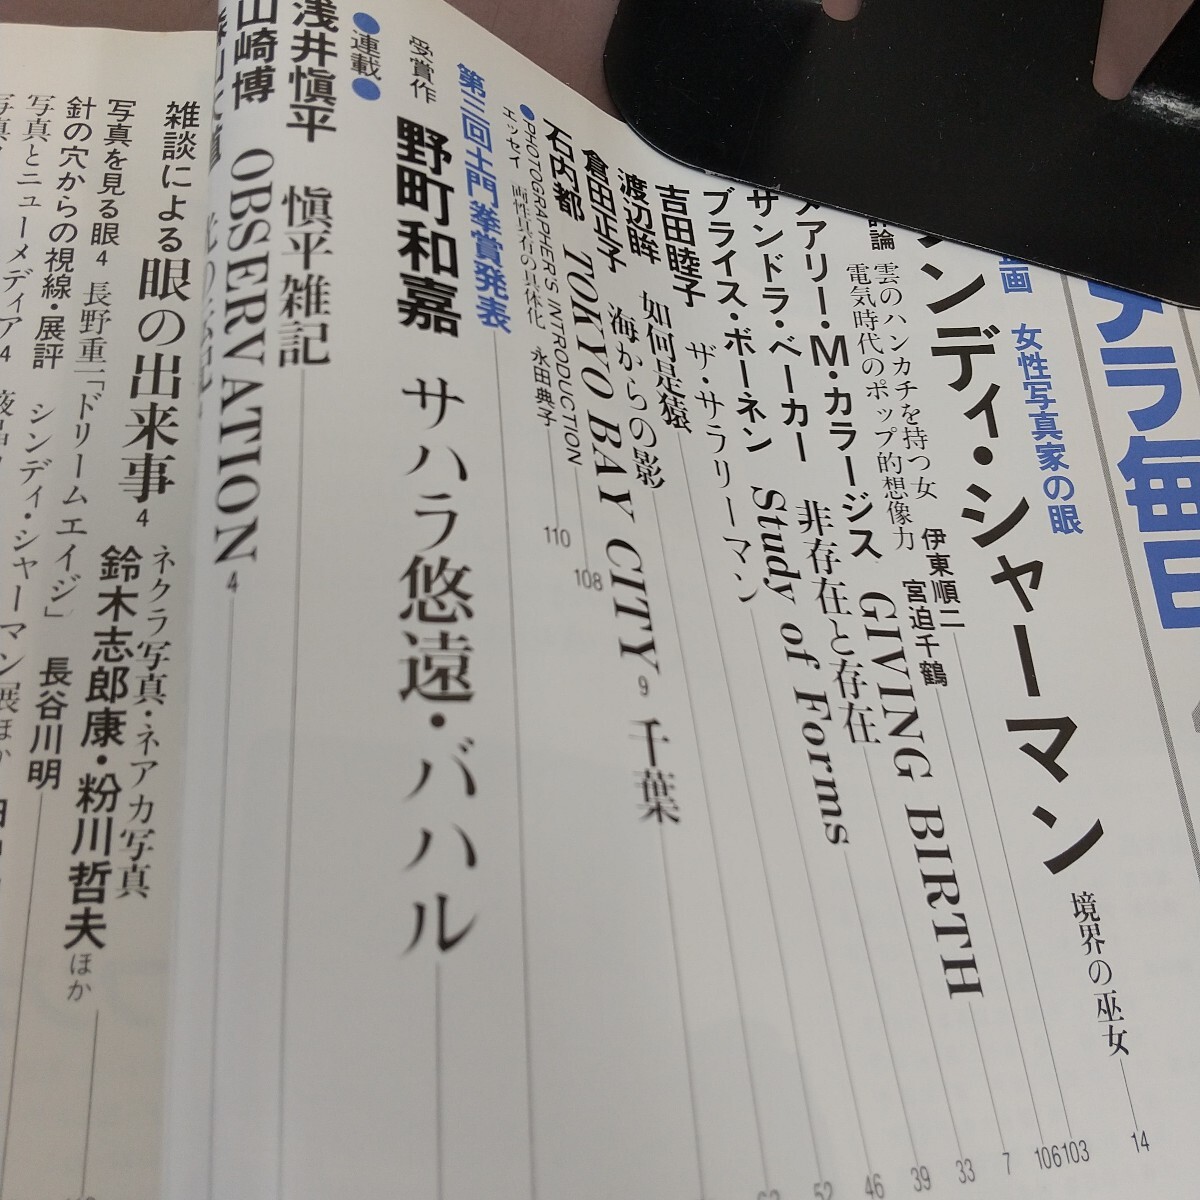 メラ毎日
画 女性写真家の眼
ンディ・シャーマン 境界の巫女 14
評論 雲のハンカチを持つ女 伊東順二 103
電気時代のポップ的想像力 宮迫千鶴 106
メアリー・M・カラージス GIVING BIRTH 7
サンドラ・ベーカー 非存在と存在 33
ブライス・ボーネン Study of Forms 39
吉田睦子 ザ・サラリーマン 46
渡辺眸 如何是猿 52
倉田正子 海からの影
石内都 TOKYO BAY CITY 9 千葉
●PHOTOGRAPHER'S INTRODUCTION 108
エッセイ 両性具有の具体化 永田典子 110
第三回土門拳賞発表
受賞作 野町和嘉 サハラ悠遠・バハル
●連載●
浅井愼平 愼平雑記
山崎博 OBSERVATION 4
雑談による眼の出来事 4
ネクラ写真・ネアカ写真
鈴木志郎康・粉川哲夫 ほか
写真を見る眼 4 長野重一「ドリームエイジ」 長谷川明
針の穴からの視線・展評 シンディ・シャーマン展ほか
写真とニューメディア 4